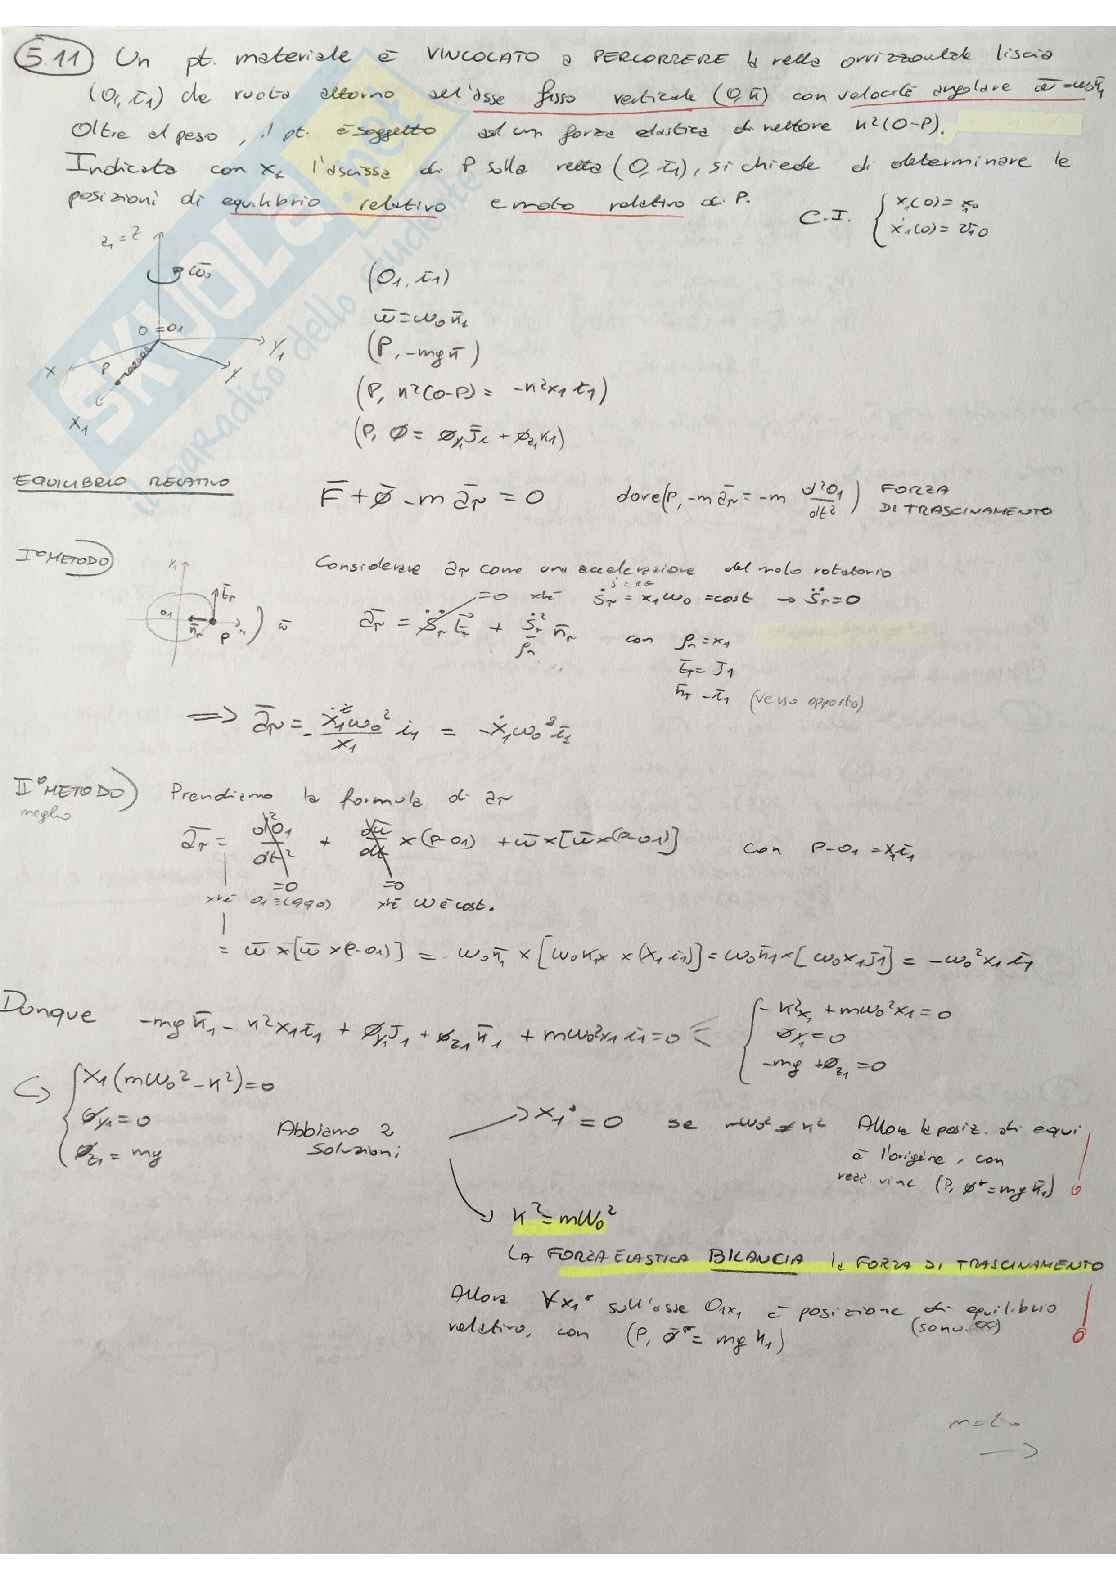 5.11 Un pt. materiale è VINCOLATO a PERCORRERE la retta orizzontale liscia
(O, ī1) che ruota attorno all'asse fisso verticale (O, k̄) con velocità angolare ω̄ = ω0 k̄1
Oltre al peso, il pt. è soggetto ad un forza elastica di vettore k²(O-P).
Indicata con x1 l'ascissa di P sulla retta (O, ī1), si chiede di determinare le
posizioni di equilibrio relativo e moto relativo di P.
C.I. { x1(0) = x10
ẋ1(0) = v10
z1 = z
ω̄0
O = O1
y1
x
P
y
x1
(O1, ī1)
ω̄ = ω0 k̄1
(P, -mg k̄)
(P, k²(O-P) = -k²x1 ī1)
(P, Φ = Φy1 J̄1 + Φz1 k1)
EQUILIBRIO RELATIVO
F̄ + Φ̄ - m āτ = 0 dove (P, -m āτ = -m d²O1/dt²) FORZA
DI TRASCINAMENTO
I° METODO)
Considerare āτ come una accelerazione del moto rotatorio
=0 xké ṡτ = x1ω0 = cost → s̈τ = 0
āτ = s̈τ t̄τ + ṡτ²/ρτ n̄τ con ρτ = x1
t̄τ = J̄1
n̄τ = -ī1 (verso opposto)
O1
t̄τ
n̄τ
P
ω̄
=> āτ = - x1²ω0²/x1 i1 = -x1ω0² ī1
II° METODO) Prendiamo la formula di āτ
meglio
āτ = d²O1/dt² + dω̄/dt × (P-O1) + ω̄ × [ω̄ × (P-O1)] con P-O1 = x1 ī1
=0 =0
xké O1 = (0,0,0) xké ω è cost.
= ω̄ × [ω̄ × (P-O1)] = ω0 k̄1 × [ω0 k1 × (x1 i1)] = ω0 k̄1 × [ω0 x1 J̄1] = -ω0² x1 ī1
Dunque -mg k̄1 - k²x1 ī1 + Φy1 J̄1 + Φz1 k̄1 + mω0²x1 ī1 = 0 <= { -k²x1 + mω0²x1 = 0
Φy1 = 0
-mg + Φz1 = 0
↳ { x1(mω0² - k²) = 0
Φy1 = 0
Φz1 = mg
Abbiamo 2
soluzioni
→ x1* = 0 se mω0² ≠ k² Allora la posiz. di equi
è l'origine, con
reaz. vinc (P, Φ* = mg k̄1)
k² = mω0²
LA FORZA ELASTICA BILANCIA la FORZA DI TRASCINAMENTO
Allora ∀x1* sull'asse O1x1 è posizione di equilibrio
relativo, con (P, Φ̄* = mg k1) (sono ∞)
SKUOLA.net
il paradiso dello studente